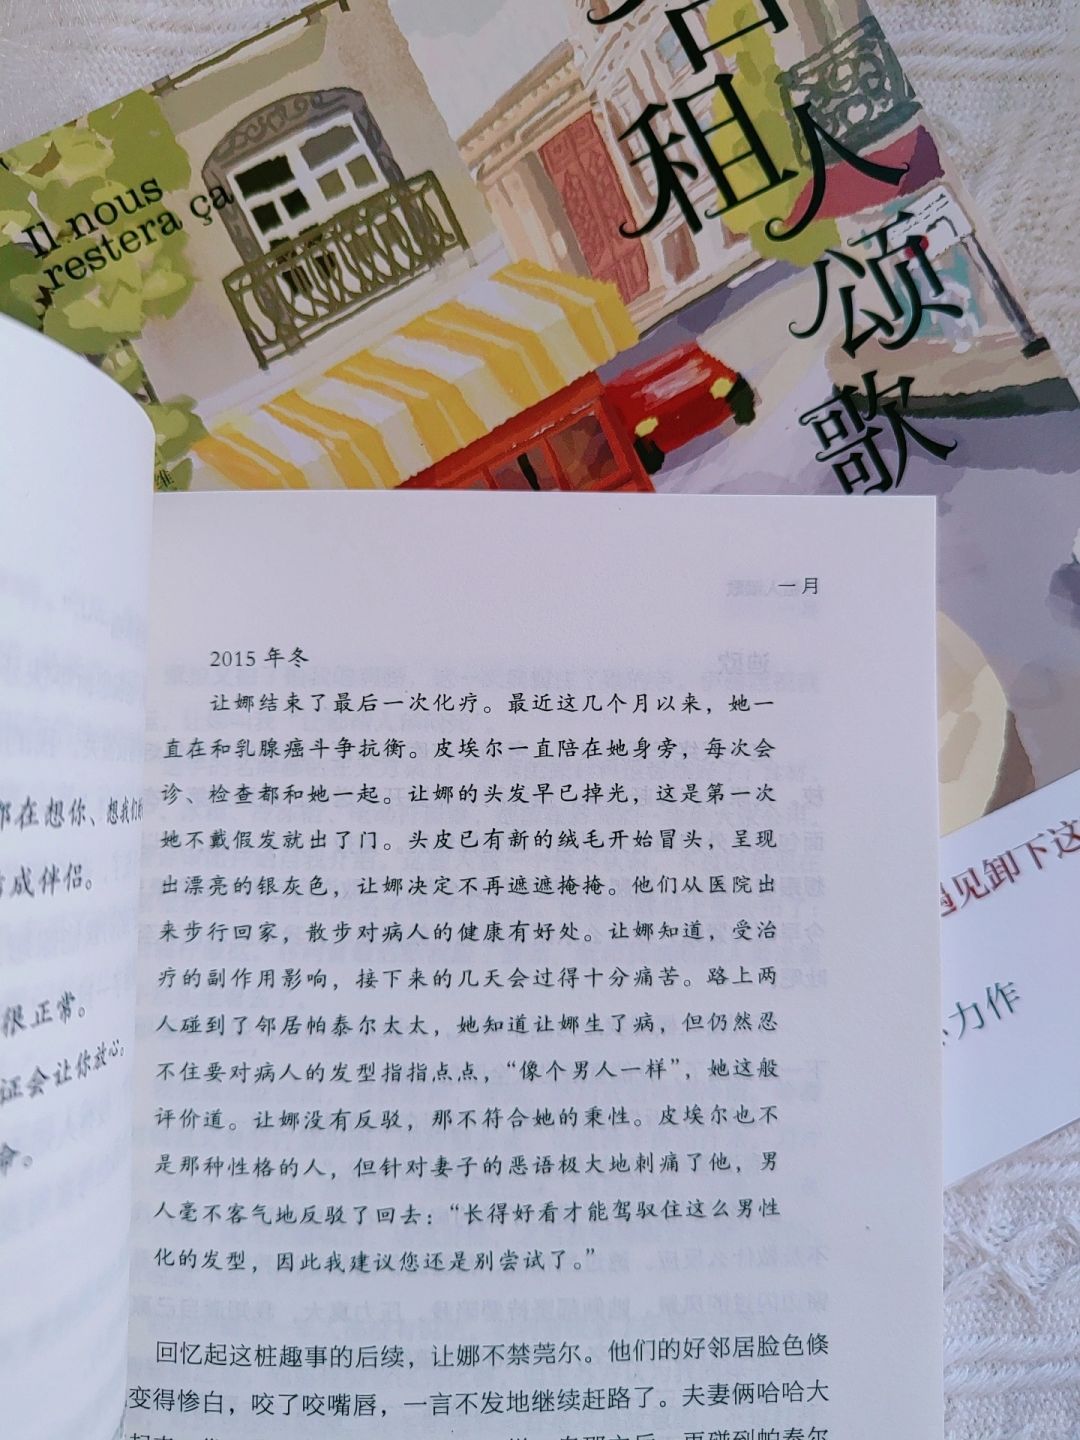 Il nous
restera ça
租
人
颂
歌
维
一月
2015 年冬
让娜结束了最后一次化疗。最近这几个月以来，她一
直在和乳腺癌斗争抗衡。皮埃尔一直陪在她身旁，每次会
诊、检查都和她一起。让娜的头发早已掉光，这是第一次
她不戴假发就出了门。头皮已有新的绒毛开始冒头，呈现
出漂亮的银灰色，让娜决定不再遮遮掩掩。他们从医院出
来步行回家，散步对病人的健康有好处。让娜知道，受治
疗的副作用影响，接下来的几天会过得十分痛苦。路上两
人碰到了邻居帕泰尔太太，她知道让娜生了病，但仍然忍
不住要对病人的发型指指点点，“像个男人一样”，她这般
评价道。让娜没有反驳，那不符合她的秉性。皮埃尔也不
是那种性格的人，但针对妻子的恶语极大地刺痛了他，男
人毫不客气地反驳了回去：“长得好看才能驾驭住这么男性
化的发型，因此我建议您还是别尝试了。”
回忆起这桩趣事的后续，让娜不禁莞尔。他们的好邻居脸色倏
变得惨白，咬了咬嘴唇，一言不发地继续赶路了。夫妻俩哈哈大
再碰到帕泰尔
在想你、想我们的
成伴侣。
很正常。
证会让你放心。
命。
遇见卸下这
力作